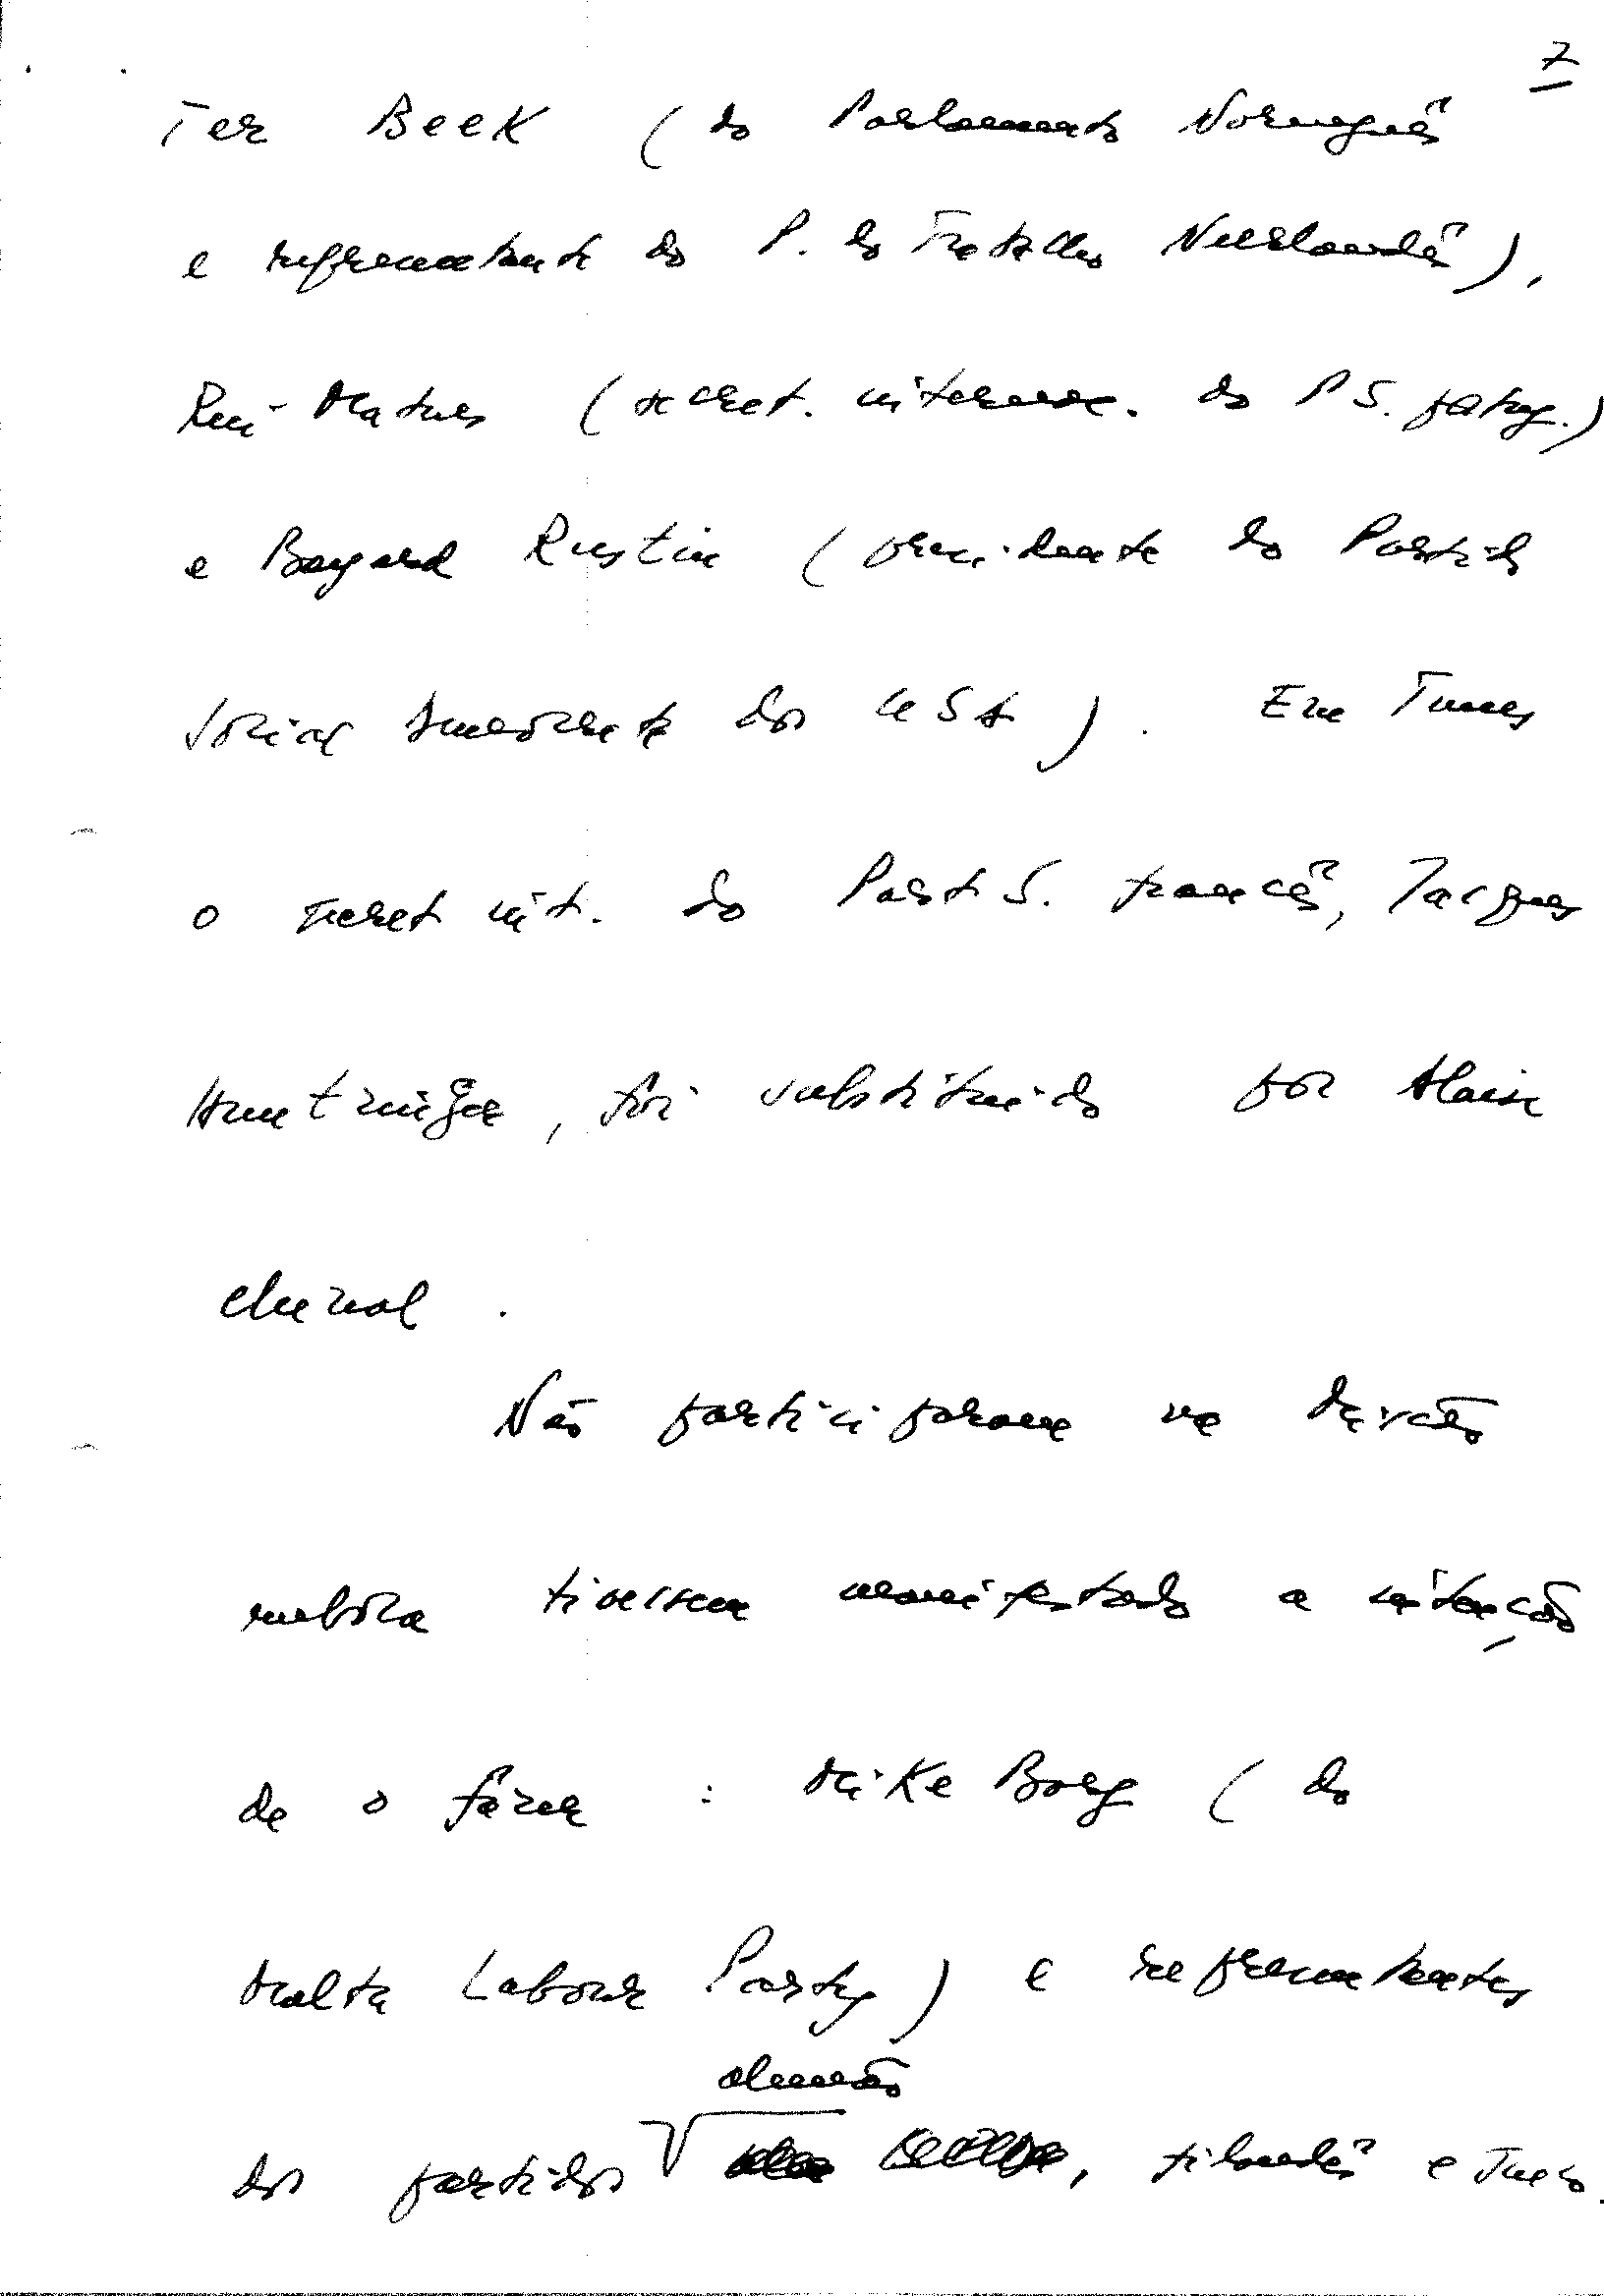 7
Ter Beek (do Parlamento Norueguês
e representante do P. do Trabalho Neerlandês),
Rui Mateus (secret. internac. do P S. portug.)
e Bayard Rustin (presidente do Partido
Social Democrata dos USA). Em Tunes
o secret int. do Part S. francês, Jacques
Huntzinger, foi substituido por Alain
Chenal.
Não participaram na
embora tivessem manifestado a intenção
de o fazer : Mike Borg (do
Malta Labour Party) e representantes
alemão
dos partidos , filandês e sueco.